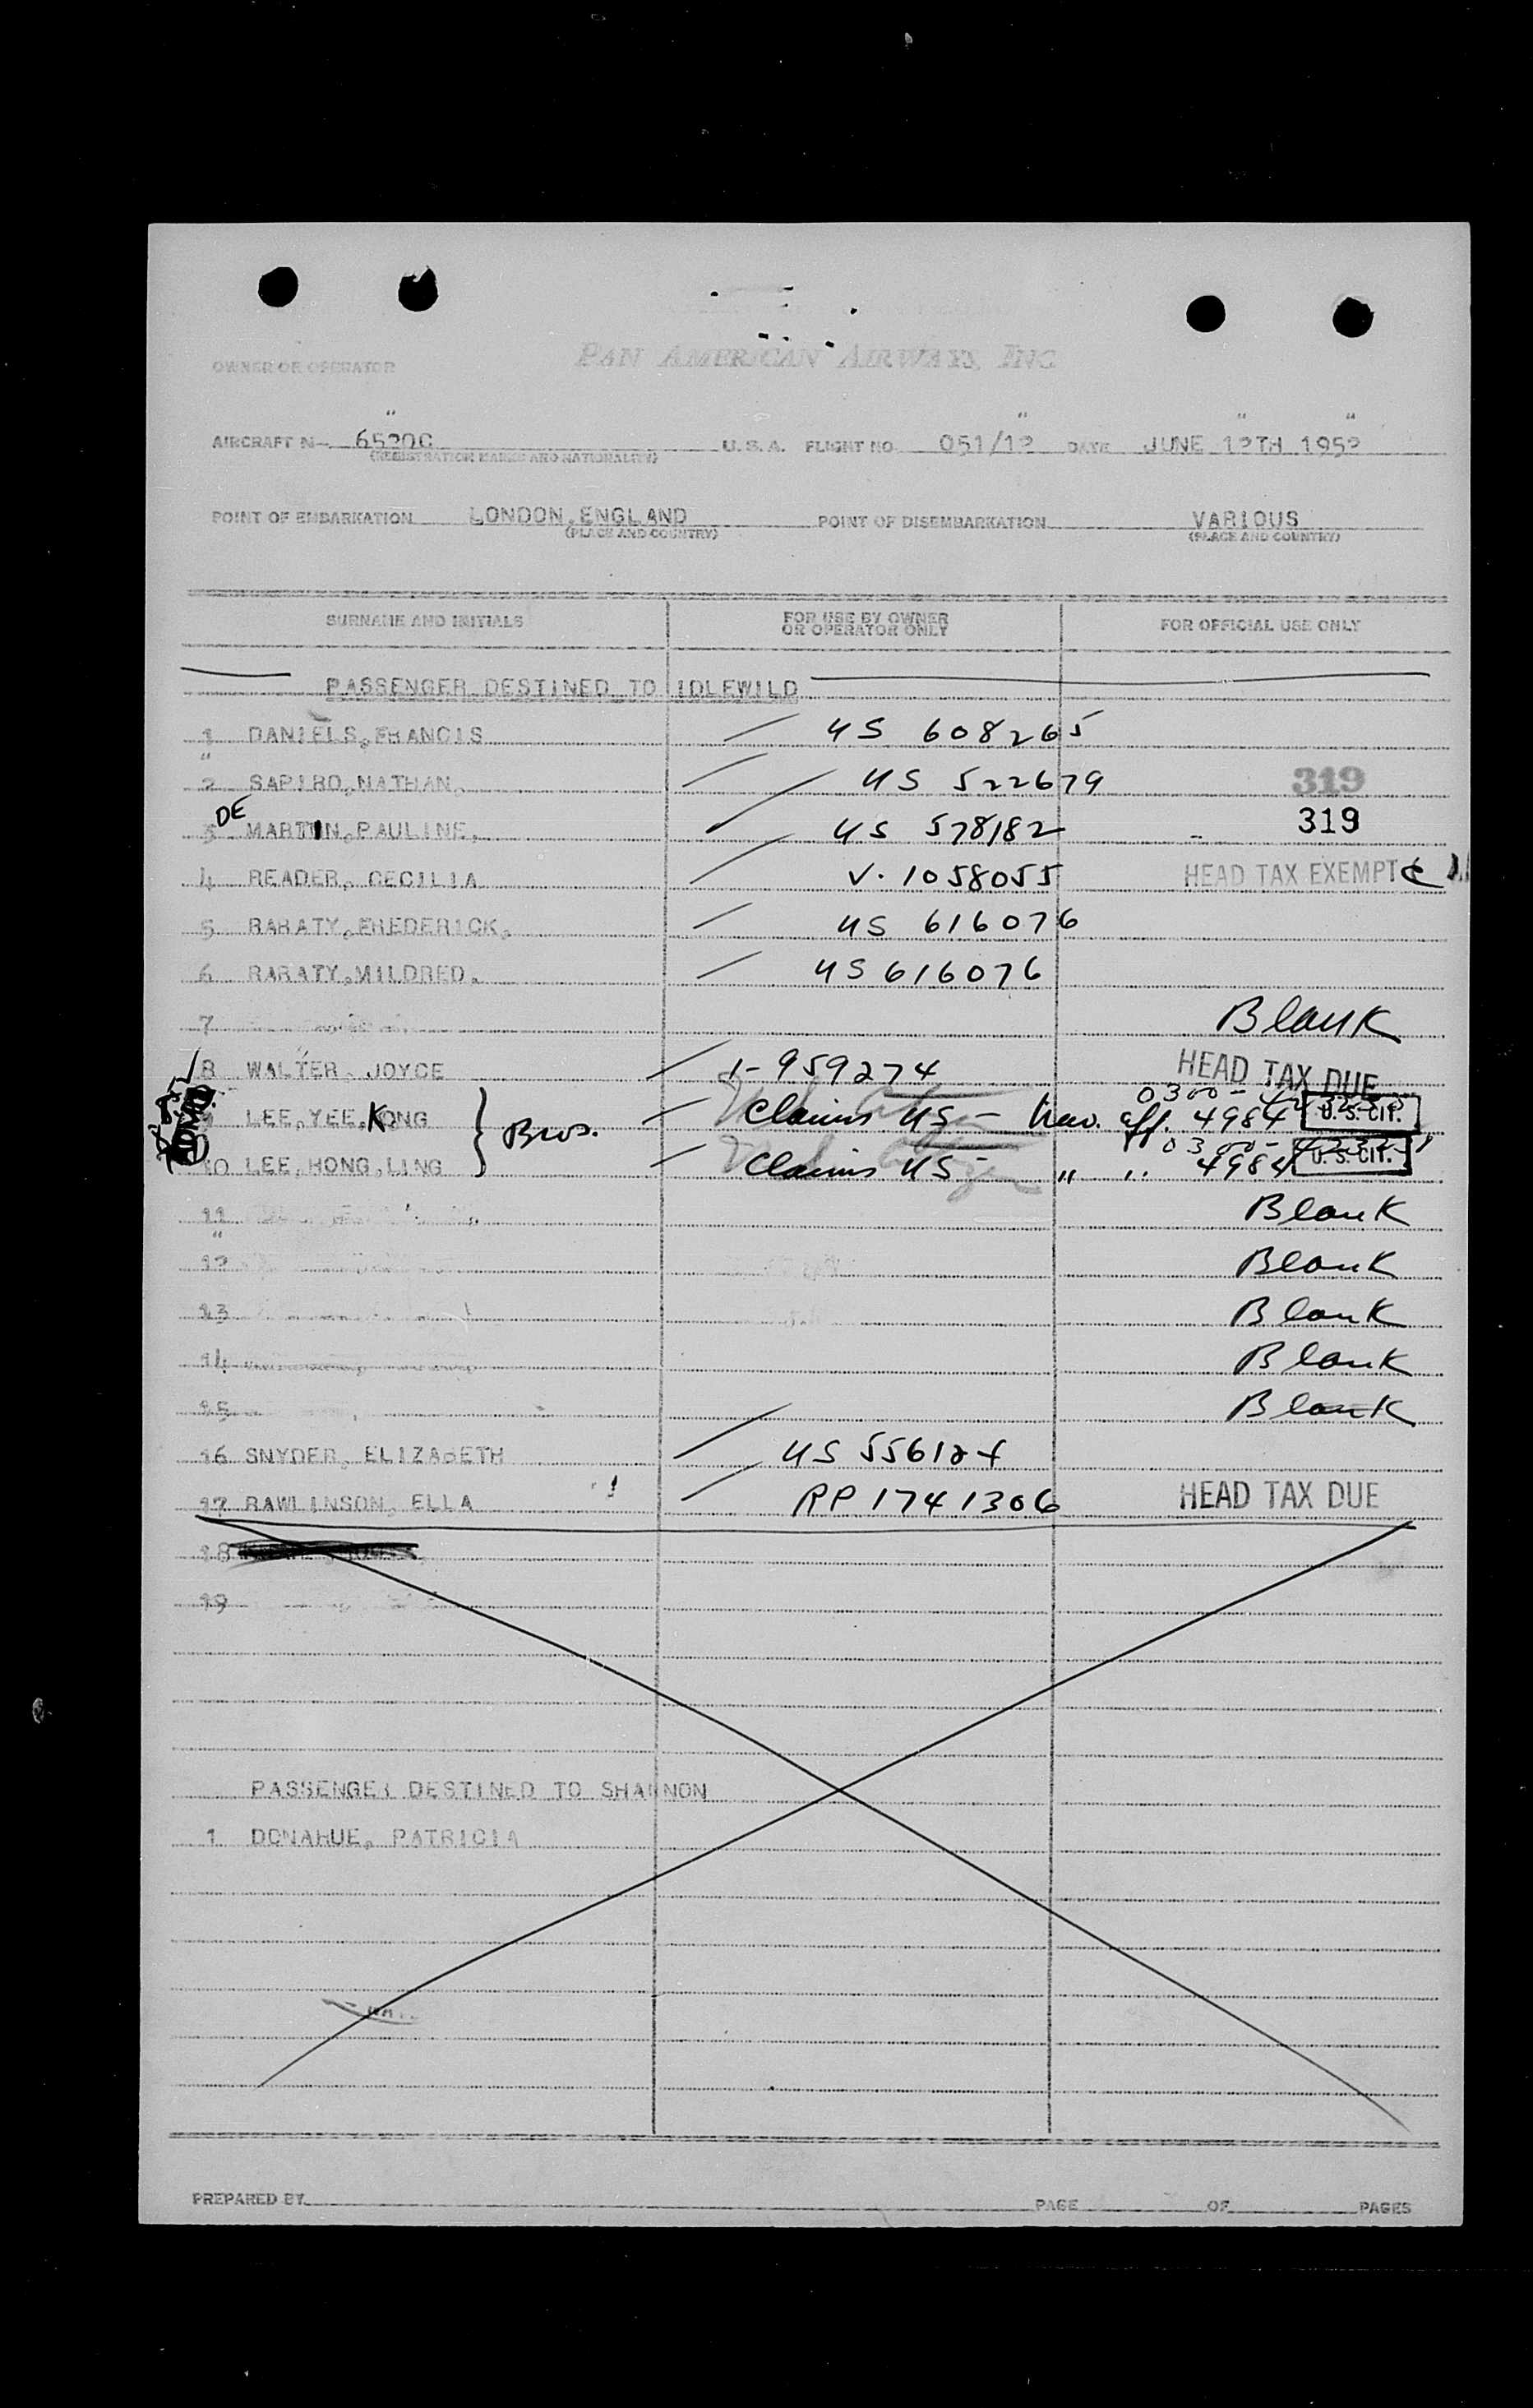 PAN AMERICAN AIRWAYS, INC
OWNER OR OPERATOR
AIRCRAFT N- 6520C U.S.A. FLIGHT NO 051/12 DATE JUNE 12TH 1952
(REGISTRATION MARKS AND NATIONALITY)
POINT OF EMBARKATION LONDON, ENGLAND POINT OF DISEMBARKATION VARIOUS
(PLACE AND COUNTRY) (PLACE AND COUNTRY)
SURNAME AND INITIALS FOR USE BY OWNER OR OPERATOR ONLY FOR OFFICIAL USE ONLY
PASSENGER DESTINED TO IDLEWILD
1 DANIELS, FRANCIS US 608265
2 SAPIRO, NATHAN. US 522679 319
3 DE MARTIN, PAULINE. US 578182 319
4 READER, CECILIA V. 1058055 HEAD TAX EXEMPT
5 RARATY, FREDERICK. US 616076
6 RARATY, MILDRED. US 616076
7 Blank
8 WALTER, JOYCE 1-959274 HEAD TAX DUE
9 LEE, YEE, KONG Bros. Claims US - trav. aff. 4984 U.S. CIT.
10 LEE, HONG, LING Claims US - " " 4984 U.S. CIT.
11 Blank
12 Blank
13 Blank
14 Blank
15 Blank
16 SNYDER, ELIZABETH
17 RAWLINSON, ELLA RP 1741306 HEAD TAX DUE
18
19
PASSENGER DESTINED TO SHANNON
1 DONAHUE, PATRICIA
PREPARED BY PAGE OF PAGES